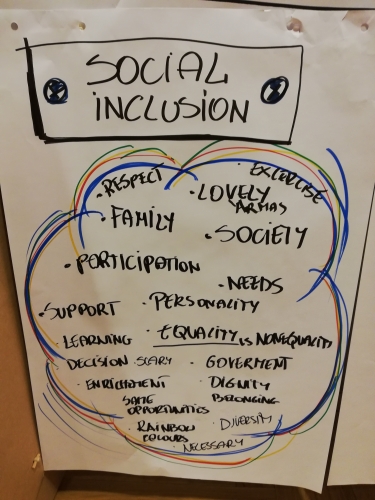 SOCIAL
INCLUSION
• RESPECT
EXCERCISE
• LOVELY
ARMAS
• FAMILY
• SOCIETY
• PARTICIPATION
• NEEDS
• SUPPORT
• PERSONALITY
• LEARNING
• EQUALITY IS NONEQUALITY
DECISION SCARY
• GOVERMENT
• ENRICHMENT
• DIGNITY
• SAME
OPPORTUNITIES
BELONGING
• RAINBOW
COLOURS
• DIVERSITY
• NECESSARY